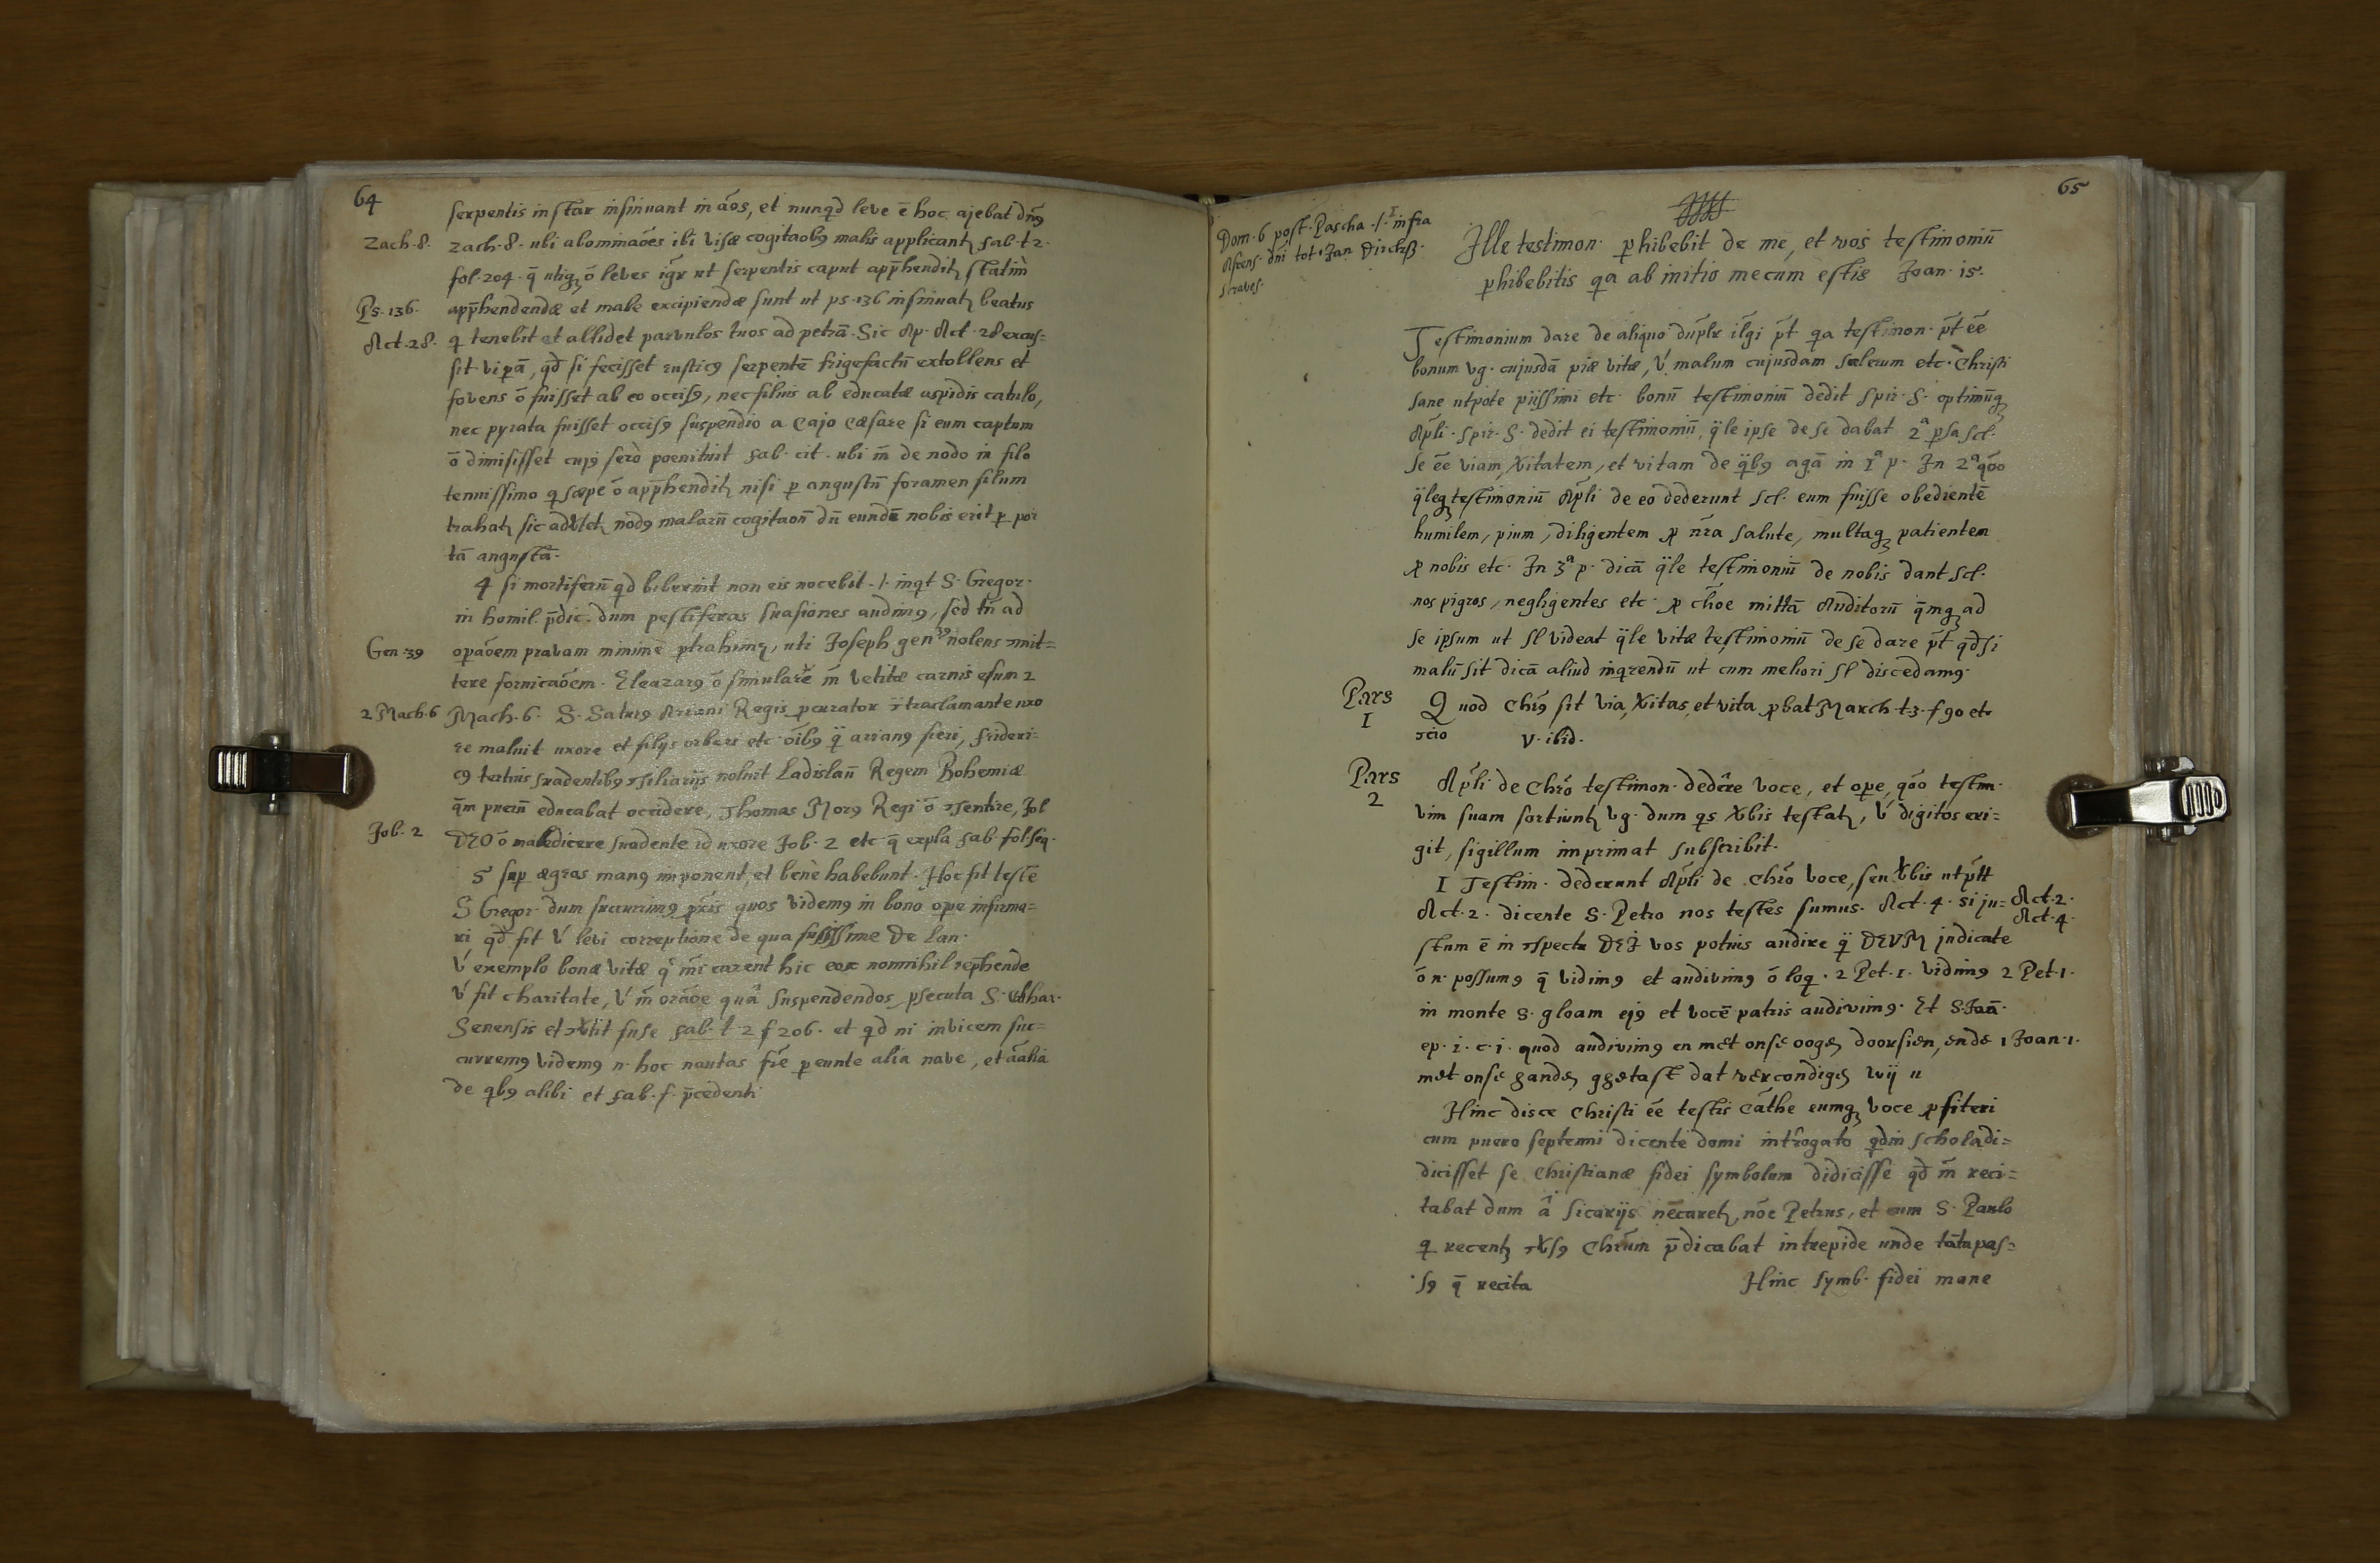 64
serpentis instar insinuant in aōs, et nunqd leve ē hoc ajebat dn͞9
Zach. 8.
zach. 8. ubi abominaōes ibi visæ cogitaob9 malis applicantꝫ fab. t 2.
fol. 204. q̄ utiqꝫ ō leves igr ut serpentis caput app̄henditꝫ statim
Ps. 136.
app̄hendendæ et male excipiendæ sunt ut ps. 136 insinuatꝫ beatus
Act. 28.
q tenebit et allidet parvulos tuos ad petrā. Sic Ap. Act. 28 excus=
sit viꝑā, qd̄ si fecisset rustic9 serpentē frigefactū extollens et
fovens ō fuisset ab eo occis9, nec filius ab educatæ aspidis catulo,
nec pyrata fuisset occis9 suspendio a Cajo Cæsare si eum captum
ō dimisisset cuj9 serò poenituit fab. cit. ubi m̄ de nodo in filo
tenuissimo q sæpe ō app̄henditꝫ nisi ꝑ angustū foramen filum
trahatꝫ sic nod9 malarū cogitaon̄ dn̄ eundū nobis erit ꝑ por
tā angustā.
4 si mortiferū qd biberint non eis nocebit .|. inqt S. Gregor.
in homil. p̄dic. dum pestiferas suasiones audim9, sed tn̄ ad
Gen. 39
opaōem pravam minimè ꝑtrahimꝫ, uti Joseph gen 39 nolens ꝯmit=
tere fornicaōem. Eleazar9 ō simulare m̄ vetitæ carnis esum 2
2 Mach. 6
Mach. 6. S. Satur9 Ariani Regis ꝓcurator ꝯtraclamante uxo
re maluit uxore et filijs orbari etc. oīb9 q̈ arian9 fieri, frideri=
c9 tertius suadentib9 ꝯsiliarijs noluit Ladislaū Regem Bohemiæ
q̄m puerū educabat occidere, Thomas Mor9 Regi ō ꝯsentire, Job
Job. 2
DEO ō maledicere suadente id uxore Job. 2 etc. q̄ expla fab. fol. seq.
5 sup ægros man9 imponent, et benè habebunt. Hoc fit teste
S Gregor. dum succurim9 ꝓxis quos videm9 in bono oꝑe infirma=
ri qd̄ fit v́ levi correptione de qua fusissime De Lan.
v́ exemplo bonæ vitæ qͦ m̄i carent hic eos nonnihil rep̄hende
v́ fit charitate, v́ m̄ oraōe quâ suspendendos ꝑsecuta S. Cathar.
Senensis et ꝯv̆tit fuse fab. t 2 f 206. et qd ni invicem suc=
currem9 videm9 n. hoc nautas frē ꝑeunte alia nave, et aālia
de qb9 alibi et fab. f. p̄cedenti
65
Dom. 6 post Pascha .|. infra
Ascens. dni tot Jan Dirckß.
straves.
Ille testimon. ꝑhibebit de me, et vos testimoniū
ꝑhibebitis qa ab initio mecum estis Joan. 15.
Testimonium dare de aliquo duplr ilgi p̄t qa testimon. p̄t ēē
bonum vg. cujusdā piæ vitæ, v́ malum cujusdam scelerum etc. Christi
sane utpote piissimi etc. bonū testimoniū dedit spir. S. optimūqꝫ
Apli. spir. S. dedit ei testimoniū, q̈le ipse de se dabat 2ª ꝑsa scl.
se ēē viam, v̆itatem, et vitam de q̈b9 agā in 1ª p. In 2ª qōo
q̈leqꝫ testimoniū Apli de eo dederunt scl. eum fuisse obedientē
humilem, pium, diligentem ꝓ nr̄a salute, multaqꝫ patientem
ꝓ nobis etc. In 3ª p. dicā q̈le testimoniū de nobis dant scl.
nos pigros, negligentes etc. ꝓ choe mittā Auditorū q̄mqꝫ ad
se ipsum ut sl videat q̈le vitæ testimoniū de se dare p̄t qd̄ si
malū sit dicā aliud inqrendū ut cum meliori sl discedam9.
Pars
1
Quod Chrs sit via, v̆itas, et vita ꝓbat March. t. 3. f 90 etc
ꝯcio v. ibid.
Pars
2
Apli de Chro testimon. dedêre voce, et oꝑe, qōo testim.
vim suam sortiuntꝫ vg. dum qs v̆bis testatꝫ, v́ digitos eri=
git, sigillum imprimat subscribit.
1 Testim. dederunt Apli de Chro voce, seu v̆bis ut ptt
Act. 2. dicente S. Petro nos testes sumus. Act. 4. si ju=
Act. 2.
Act. 4.
stum ē in ꝯspectu DEI vos potius audire q̈ DEUM judicate
ō n. possum9 q̄ vidim9 et audivim9 ō loq. 2 Pet. 1. vidim9
2 Pet. 1.
in monte S. gloam ej9 et vocē patris audivim9. Et S. Joā.
ep. 1. c. 1. quod audivim9 en met onse oogē doorsien, ende
1 Joan. 1.
met onse handē ghetast dat vercondigē wij "
Hinc disce Christi ēē testis Cathe eumqꝫ voce ꝓfiteri
cum puero septenni dicente domi intr̄ogato qd in schola di=
dicisset se Christianæ fidei symbolum didicisse qd̄ m̄ reci=
tabat dum â sicarijs necaretꝫ, nōe Petrus, et cum S. Paulo
q recentꝫ ꝯv̆s9 Chrum p̄dicabat intrepide unde tāta pas=
s9 q̄ recita Hinc symb. fidei mane